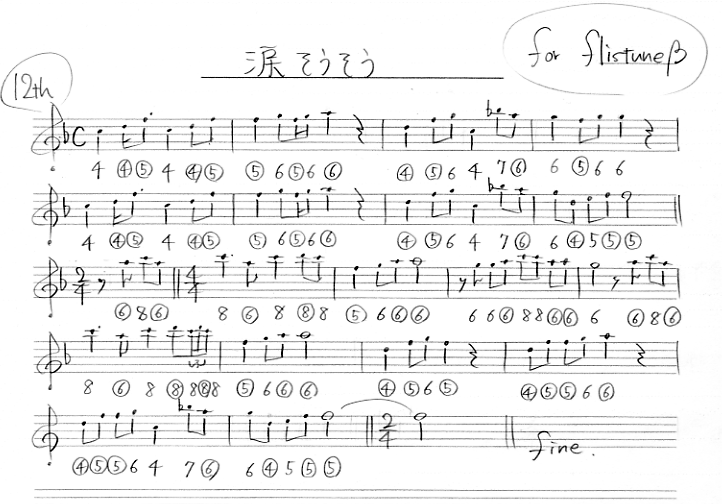 涙そうそう
for flistuneβ
12th
4 ④⑤ 4 ④⑤ ⑤ 6⑤6 ⑥ ④ ⑤ 6 4 7⑥ 6 ⑤ 6 6
4 ④⑤ 4 ④⑤ ⑤ 6⑤6⑥ ④ ⑤ 6 4 7 ⑥ 6 ④ ⑤ ⑤ ⑤
2/4 4/4
⑥ 8 ⑥ 8 ⑥ 8 ⑧ 8 ⑤ 6 ⑥ ⑥ 6 6 ⑥ 8 8 ⑥ ⑥ 6 ⑥ 8 ⑥
8 ⑥ 8 ⑧ 8 ⑧ 8 ⑤ 6 ⑥ ⑥ ④ ⑤ 6 ⑤ ④ ⑤ ⑤ 6 ⑥
2/4 fine.
④ ⑤ ⑤ 6 4 7 ⑥ 6 ④ 5 ⑤ ⑤